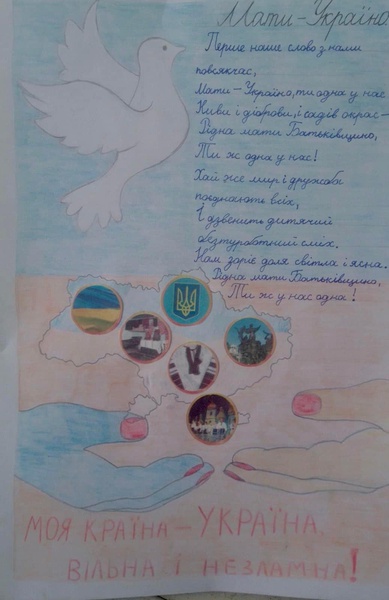 Мати-Україно
Перше наше слово з нами
повсякчас,
Мати-Україно, ти одна у нас
Ниви і діброви, і садів окрас-
Рідна мати Батьківщино,
Ти ж одна у нас!
Хай же мир і дружба
поєднають всіх,
І дзвенить дитячий
безтурботний сміх.
Нам зоріє доля світла і ясна.
Рідна мати Батьківщино,
Ти ж у нас одна!
МОЯ КРАЇНА – УКРАЇНА,
ВІЛЬНА І НЕЗЛАМНА!